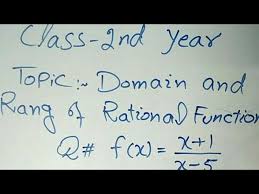 Class-2nd year
Topic:- Domain and
Rang of Rational Function
Q# f(x) = x+1
x-5